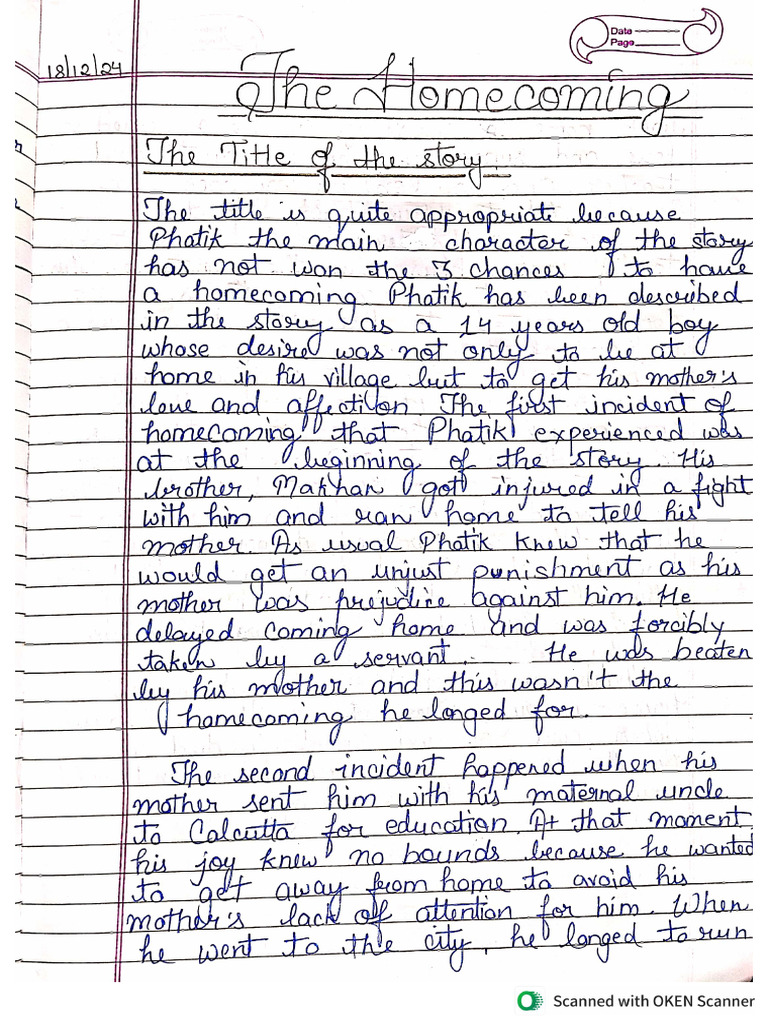 Date
Page
18/12/24
The Homecoming
The Title of the story
The title is quite appropriate because
Phatik the main character of the story
has not won the 3 chances to have
a homecoming Phatik has been described
in the story as a 14 years old boy
whose desire was not only to be at
home in his village but to get his mother's
love and affection. The first incident of
homecoming that Phatik experienced was
at the beginning of the story. His
brother, Makhan got injured in a fight
with him and ran home to tell his
mother. As usual Phatik knew that he
would get an unjust punishment as his
mother was prejudice against him. He
delayed coming home and was forcibly
taken by a servant. He was beaten
by his mother and this wasn't the
homecoming he longed for.
The second incident happened when his
mother sent him with his maternal uncle
to Calcutta for education. At that moment
his joy knew no bounds because he wanted
to get away from home to avoid his
mother's lack of attention for him. When
he went to the city, he longed to run
Scanned with OKEN Scanner